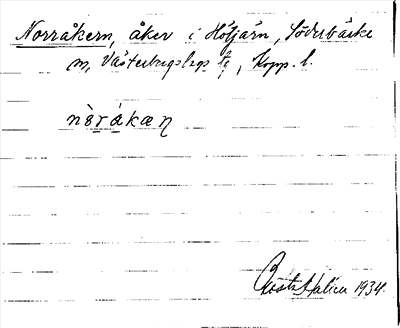 Norråkern, åker i Hötjärn, Söderbärke
sn, Västerbergslags
, Kopp. l.
nò̀rákæn
1934.